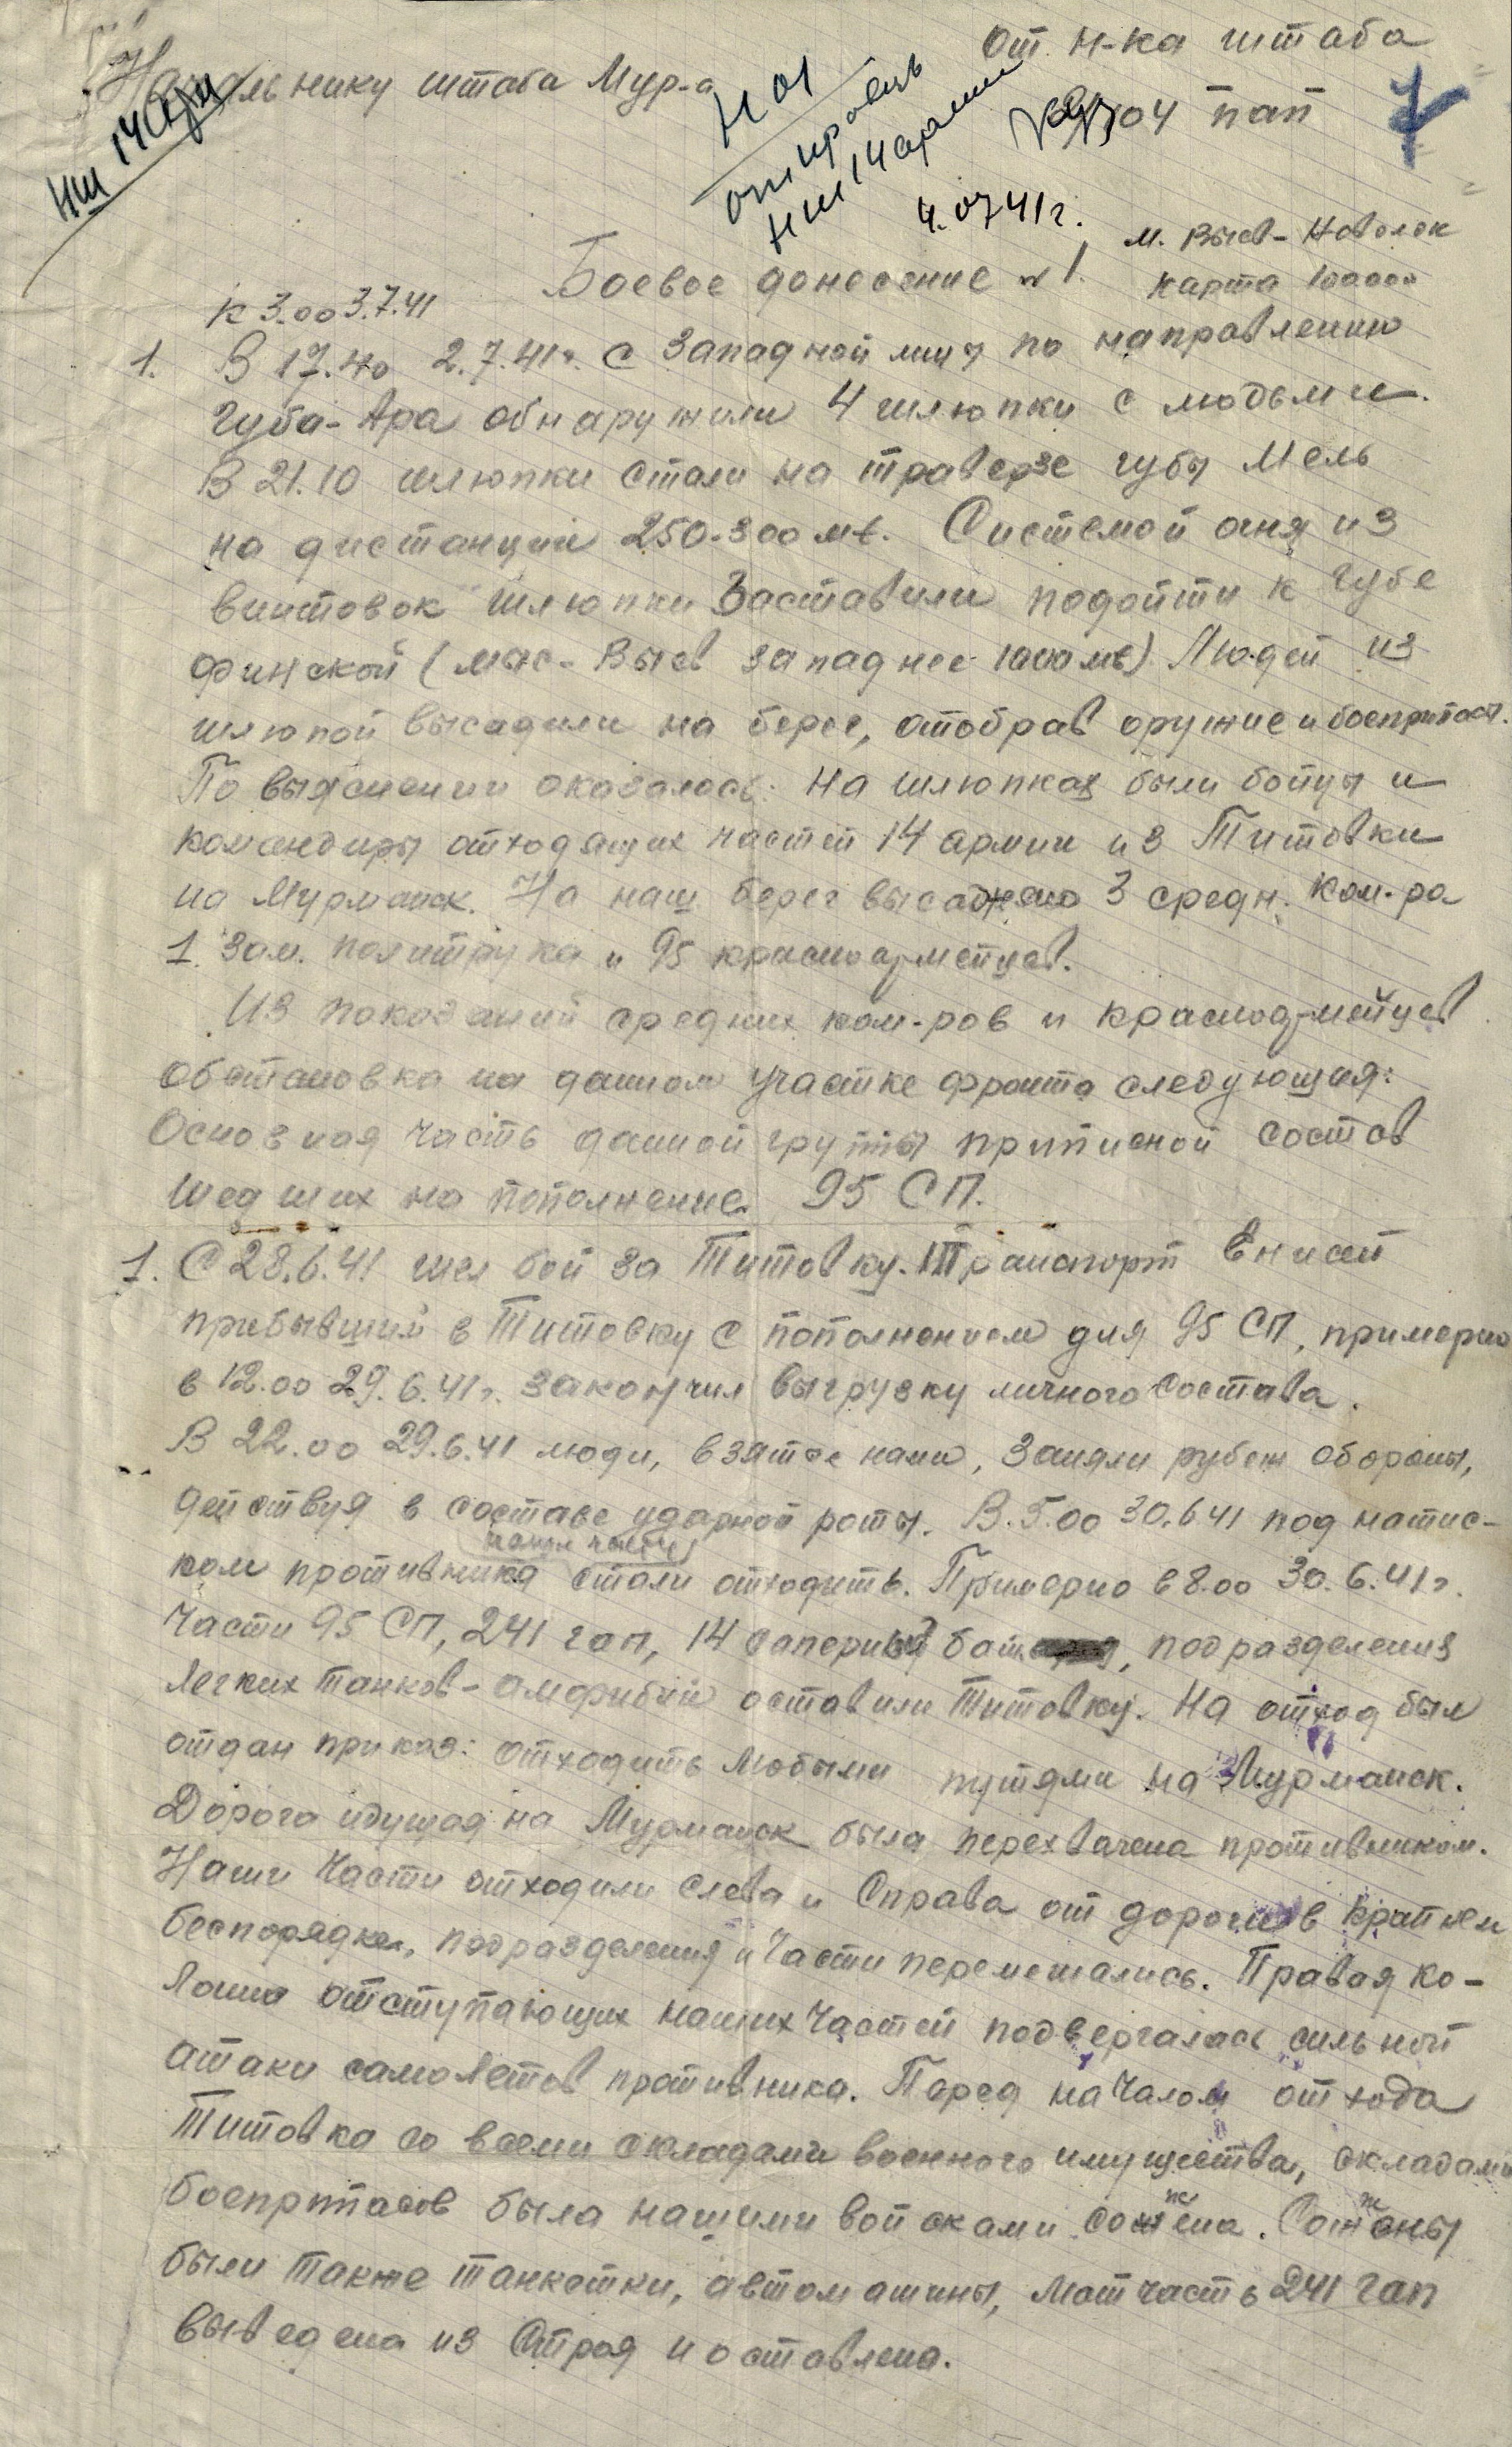 От н-ка штаба
Начальнику штаба Мур-а
104 пап
7
НШ 14 арм
НО1
отправить
НШ 14 армии
4.07 41 г.
м. Выев-Наволок
Боевое донесение №1.
карта 100000
к 3.00 3.7.41
1. В 17.40 2.7.41г. с Западной лицы по направлению
Губа-Ара обнаружили 4 шлюпки с людьми.
В 21.10 шлюпки стали на траверзе губы Мель
на дистанции 250-300 мт. Системой огня из
винтовок шлюпки заставили подойти к губе
финской (мыс-Выев западнее 1000 мт) Людей из
шлюпой высадили на берег, отобрав оружие и боеприпасы.
По выяснении оказалось: на шлюпках были бойцы и
командиры отходящих частей 14 армии из Титовки
на Мурманск. На наш берег высаджено 3 средн. ком-ра
1 зам. политрука и 95 красноармейцев.
Из показаний средних ком-ров и красноармейцев
обстановка на данном участке фронта следующия:
Основная часть данной группы приписной состав
шедших на пополнение 95 СП.
1. С 28.6.41 шел бой за Титовку. Транспорт Енисей
прибывший в Титовку с пополнением для 95 СП, примерно
в 12.00 29.6.41г. закончил выгрузку личного состава.
В 22.00 29.6.41 люди, взятые нами, заняли рубеж обороны,
действуя в составе ударной роты. В 5.00 30.6.41 под натис-
наши части
ком противника стали отходить. Примерно в 8.00 30.6.41г.
Части 95 СП, 241 гап, 14 саперный бат., подразделения
легких танков-амфибий оставили Титовку. На отход был
отдан приказ: отходить любыми путями на Мурманск.
Дорога идущая на Мурманск была перехвачена противником.
Наши части отходили слева и справа от дороги в крайнем
беспорядке, подразделения и части перемешались. Правая ко-
лонна отступающих наших частей подвергалась сильной
атаки самолетов противника. Перед началом отхода
Титовка со всеми складами военного имущества, складами
боеприпасов была нашими войсками сожжена. Сожжены
были также танкетки, автомашины, матчасть 241 гап
выведена из строя и оставлена.